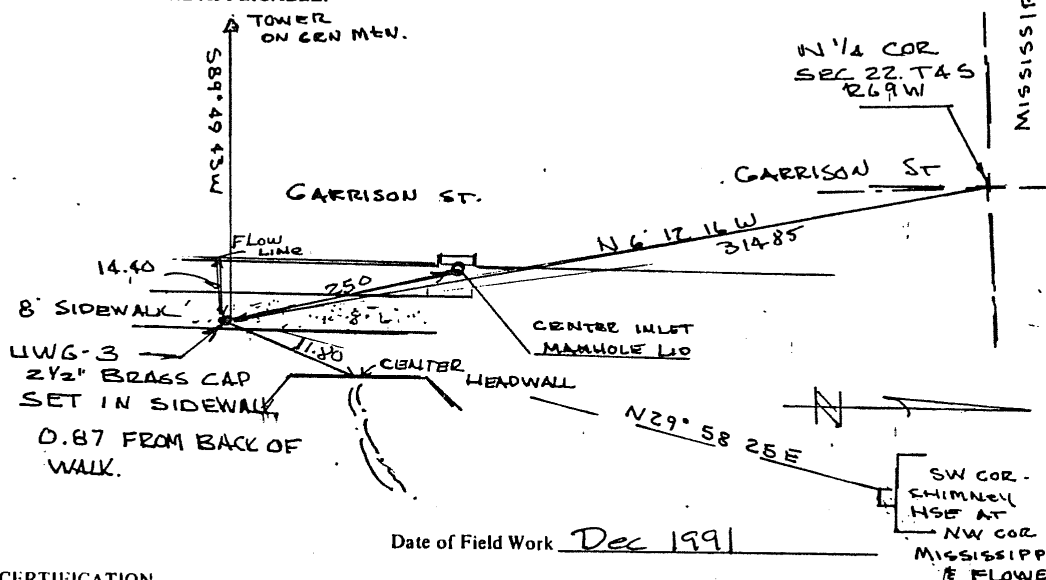 TOWER
ON GRN MTN.
S89° 49 43W
N 1/4 COR
SEC 22. T4S
R69W
GARRISON ST.
GARRISON ST
FLOW
LINE
N 6° 12 16 W
314.85
14.40
250
8' SIDEWALK
CENTER INLET
MANHOLE LID
UWG-3
2½" BRASS CAP
SET IN SIDEWALK
0.87 FROM BACK OF
WALK.
11.80
CENTER HEADWALL
N
N29° 58 25E
SW COR.
CHIMNEY
HSE AT
NW COR
MISSISSIPP
& FLOWE
Date of Field Work Dec 1991